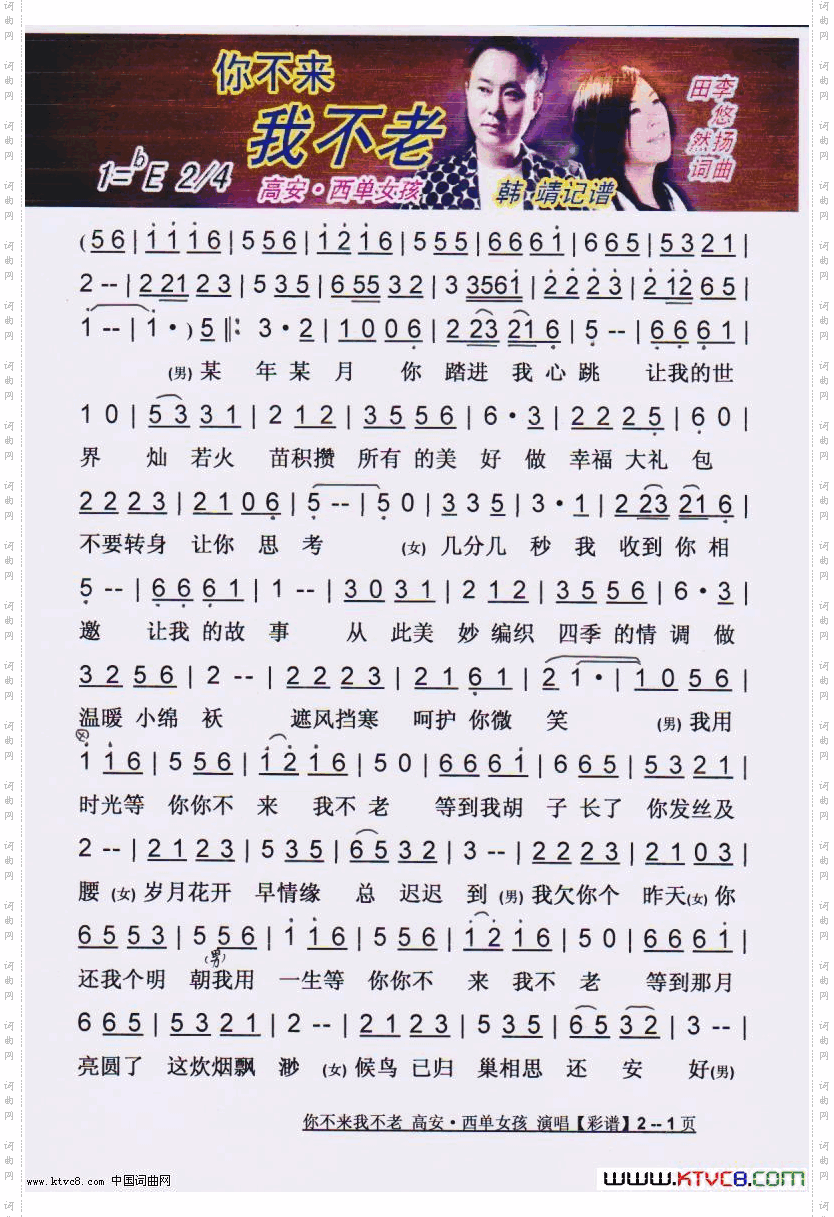 你不来
我不老
1=bE 2/4
高安·西单女孩
韩 靖记谱
田悠然词
李扬曲
(5 6 | 1 1 1 6 | 5 5 6 | 1 2 1 6 | 5 5 5 | 6 6 6 1 | 6 6 5 | 5 3 2 1 |
2 -- | 2 21 2 3 | 5 3 5 | 6 55 3 2 | 3 3561 | 2 2 2 3 | 2 12 6 5 |
1 -- | 1 · ) 5 ‖: 3 · 2 | 1 0 0 6 | 2 23 21 6 | 5 -- | 6 6 6 1 |
(男) 某 年 某 月 你 踏进 我 心 跳 让我的世
1 0 | 5 3 3 1 | 2 1 2 | 3 5 5 6 | 6 · 3 | 2 2 2 5 | 6 0 |
界 灿 若火 苗积攒 所有 的美 好 做 幸福 大礼 包
2 2 2 3 | 2 1 0 6 | 5 -- | 5 0 | 3 3 5 | 3 · 1 | 2 23 21 6 |
不要转身 让你 思 考 (女) 几分几 秒 我 收到 你 相
5 -- | 6 6 6 1 | 1 -- | 3 0 3 1 | 2 1 2 | 3 5 5 6 | 6 · 3 |
邀 让我 的故 事 从 此美 妙 编织 四季 的情 调 做
3 2 5 6 | 2 -- | 2 2 2 3 | 2 1 6 1 | 2 1 · | 1 0 5 6 |
温暖 小绵 袄 遮风挡寒 呵护 你微 笑 (男) 我用
1 1 6 | 5 5 6 | 1 2 1 6 | 5 0 | 6 6 6 1 | 6 6 5 | 5 3 2 1 |
时光等 你你不 来 我不 老 等到我胡 子 长了 你发丝及
2 -- | 2 1 2 3 | 5 3 5 | 6 5 3 2 | 3 -- | 2 2 2 3 | 2 1 0 3 |
腰 (女) 岁月花开 早情缘 总 迟迟 到 (男) 我欠你个 昨天(女) 你
6 5 5 3 | 5 5 6 | 1 1 6 | 5 5 6 | 1 2 1 6 | 5 0 | 6 6 6 1 |
(男)
还我个明 朝我用 一生等 你你不 来 我不 老 等到那月
6 6 5 | 5 3 2 1 | 2 -- | 2 1 2 3 | 5 3 5 | 6 5 3 2 | 3 -- |
亮圆了 这炊烟飘 渺 (女) 候鸟 已归 巢相思 还 安 好(男)
你不来我不老 高安·西单女孩 演唱【彩谱】2 -- 1 页
www.ktvc8.com 中国词曲网
www.KTVC8.com